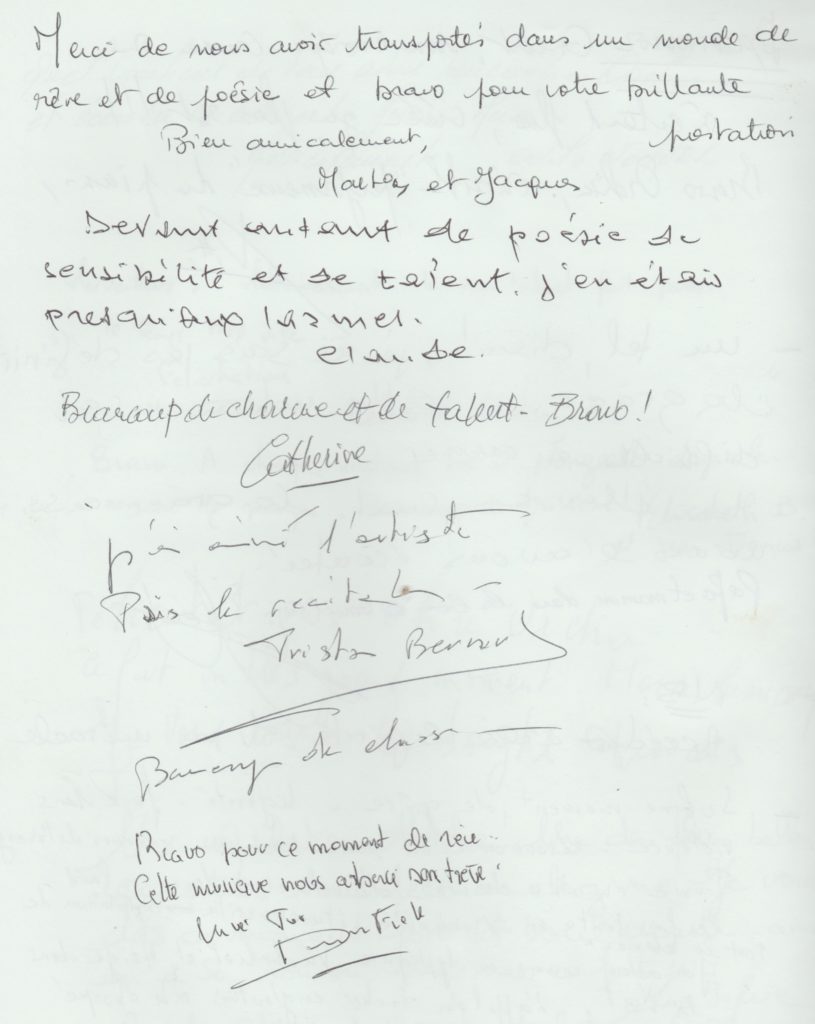 Merci de nous avoir transportés dans un monde de
rêve et de poésie et bravo pour votre brillante
Bien amicalement, prestation
et Jacques
Devant autant de poésie de
sensibilité et de talent. j'en étais
presqu'aux larmes.
Claude.
Beaucoup de charme et de talent - Bravo!
Catherine
j'ai aimé l'artiste
Puis le recital -
Tristan Bernard
Beaucoup de classe
Bravo pour ce moment de rêve..
Cette musique nous a